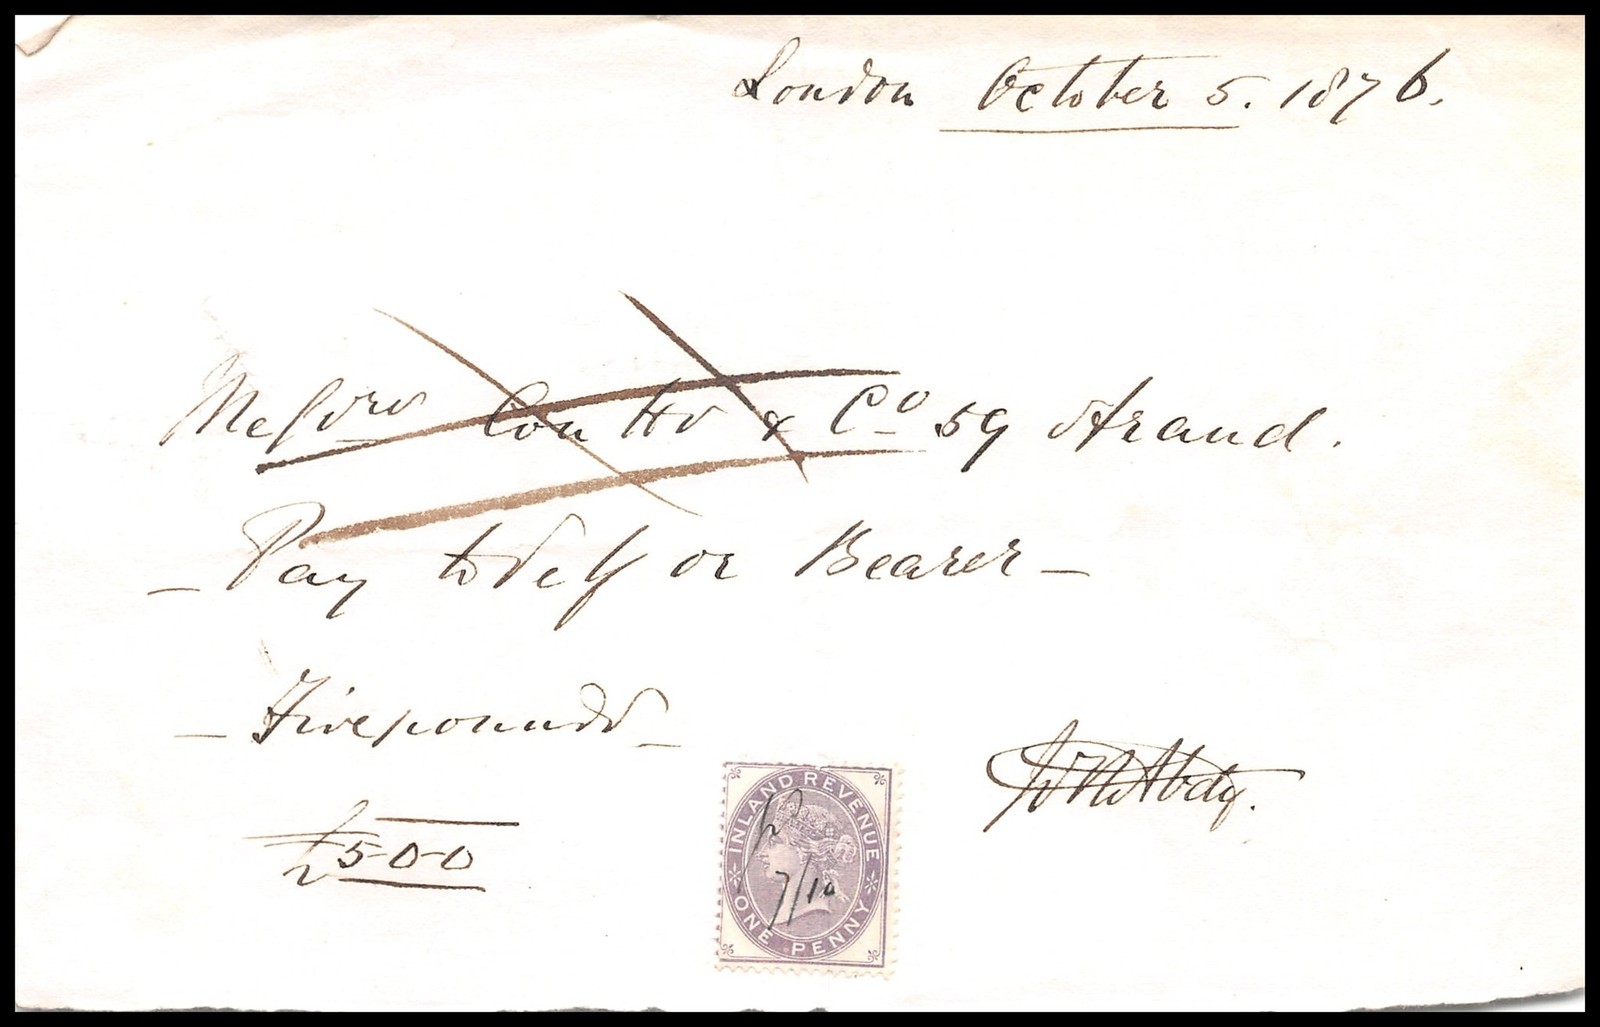 London October 5. 1876.
Messrs Coutts & Co 59 Strand.
- Pay to Self or Bearer -
- Five pounds -
£5-0-0
INLAND REVENUE
7/10
ONE PENNY